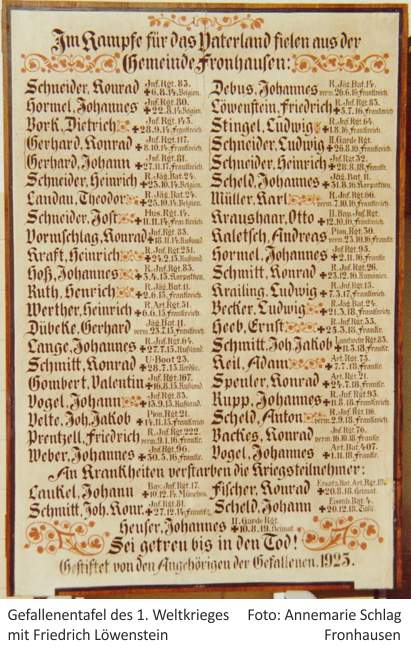 Im Kampfe für das Vaterland fielen aus der
Gemeinde Fronhausen:
Schneider, Konrad Inf.Rgt. 83. ✚ 6.8.14. Belgien.
Hormel, Johannes Inf.Rgt. 80. ✚ 22.8.14. Belgien.
Bork, Dietrich Inf.Rgt. 143. ✚ 28.9.14. Frankreich.
Gerhard, Konrad Inf.Rgt. 117. ✚ 8.10.14. Frankreich.
Gerhard, Johann Inf.Rgt. 81. ✚ 27.11.17. Frankreich.
Schneider, Heinrich R.Jäg.Bat. 24. ✚ 23.10.14. Belgien.
Landau, Theodor R.Jäg.Bat. 24. ✚ 25.10.14. Belgien.
Schneider, Jost Hus.Rgt. 14.
Vormschlag, Konrad Inf.Rgt. 83.
Kraft, Heinrich R.Inf.Rgt. 251. ✚ 24.2.15. Rußland.
Hoß, Johannes R.Inf.Rgt. 83. ✚ 3.4.15. Karpathen.
Ruth, Henrich R.Jäg.Bat. 11.
Werther, Heinrich R.Art.Rgt. 51. ✚ 6.6.15. Frankreich.
Dübeke, Gerhard Jäg.Bat. 11.
Lange, Johannes R.Inf.Rgt. 64. ✚ 27.7.15. Rußland.
Schmitt, Konrad U-Boot 23. ✚ 28.7.15.
Gombert, Valentin Inf.Rgt. 167. ✚ 16.8.15. Rußland.
Vogel, Johann Inf.Rgt. 83. ✚ 13.9.15. Rußland.
Velte, Joh. Jakob Pion.Rgt. 21. ✚ 14.11.15. Frankreich.
Prentzell, Friedrich R.Inf.Rgt. 222. verm. 9.1.16. Frankr.
Weber, Johannes Inf.Rgt. 96. ✚ 30.5.16. Frankr.
Debus, Johannes R.Jäg.Bat. 14. verm. 26.6.16. Frankreich.
Löwenstein, Friedrich R.Inf.Rgt. 83. ✚ 5.7.16. Frankreich.
Stingel, Ludwig R.Inf.Rgt. 64. ✚ 1.8.16. Frankreich.
Schneider, Ludwig II. Garde Rgt.
Schneider, Heinrich Inf.Rgt. 32. ✚ 28.8.18. Frankr.
Scheld, Johannes Jäg.Bat. 11. ✚ 31.8.16. Karpathen.
Müller, Karl R.Inf.Rgt. 66. verm. 7.10.16. Frankreich.
Kraushaar, Otto ✚ 12.10.16. Frankreich.
Kaletsch, Andreas Pion.Rgt. 30. verm. 23.10.16. Frankr.
Hormel, Johannes Inf.Rgt. 93. ✚ 2.11.16. Frankr.
Schmitt, Konrad R.Inf.Rgt. 26. ✚ 23.12.16. Rumänien.
Krailing, Ludwig R.Inf.Rgt. 13. ✚ 7.3.17. Frankreich.
Becker, Ludwig R.Jäg.Bat. 24. ✚ 21.3.18. Frankreich.
Heeb, Ernst R.Inf.Rgt. 53. ✚ 25.3.18. Frankr.
Schmitt, Joh. Jakob ✚ 11.5.18. Frankr.
Keil, Adam Art.Rgt. 73. ✚ 7.7.18. Frankr.
Spenler, Konrad Art.Rgt. 21. ✚ 24.7.18. Frankr.
Rupp, Johannes R.Inf.Rgt. 93. ✚ 11.8.18. Frankreich.
Scheld, Anton R.Inf.Rgt. 116. verm. 2.9.18. Frankr.
Backes, Konrad Inf.Rgt. 76. verm. 16.10.18. Frankr.
Vogel, Johannes Art.Bat. 407. ✚ 1.11.18. Frankr.
An Krankheiten verstarben die Kriegsteilnehmer:
Laukel, Johann Bay.Inf.Rgt. 17. ✚ 10.12.14. München.
Schmitt, Joh. Konr. Inf.Rgt. 81. ✚ 27.12.14. Frankr.
Fischer, Konrad ✚ 20.8.18. Heimat.
Scheld, Johann ✚ 20.12.18.
Heuser, Johannes II. Garde Rgt. ✚ 10.8.19. Heimat.
Sei getreu bis in den Tod!
Gestiftet von den Angehörigen der Gefallenen. 1923.
Gefallenentafel des 1. Weltkrieges Foto: Annemarie Schlag
mit Friedrich Löwenstein Fronhausen